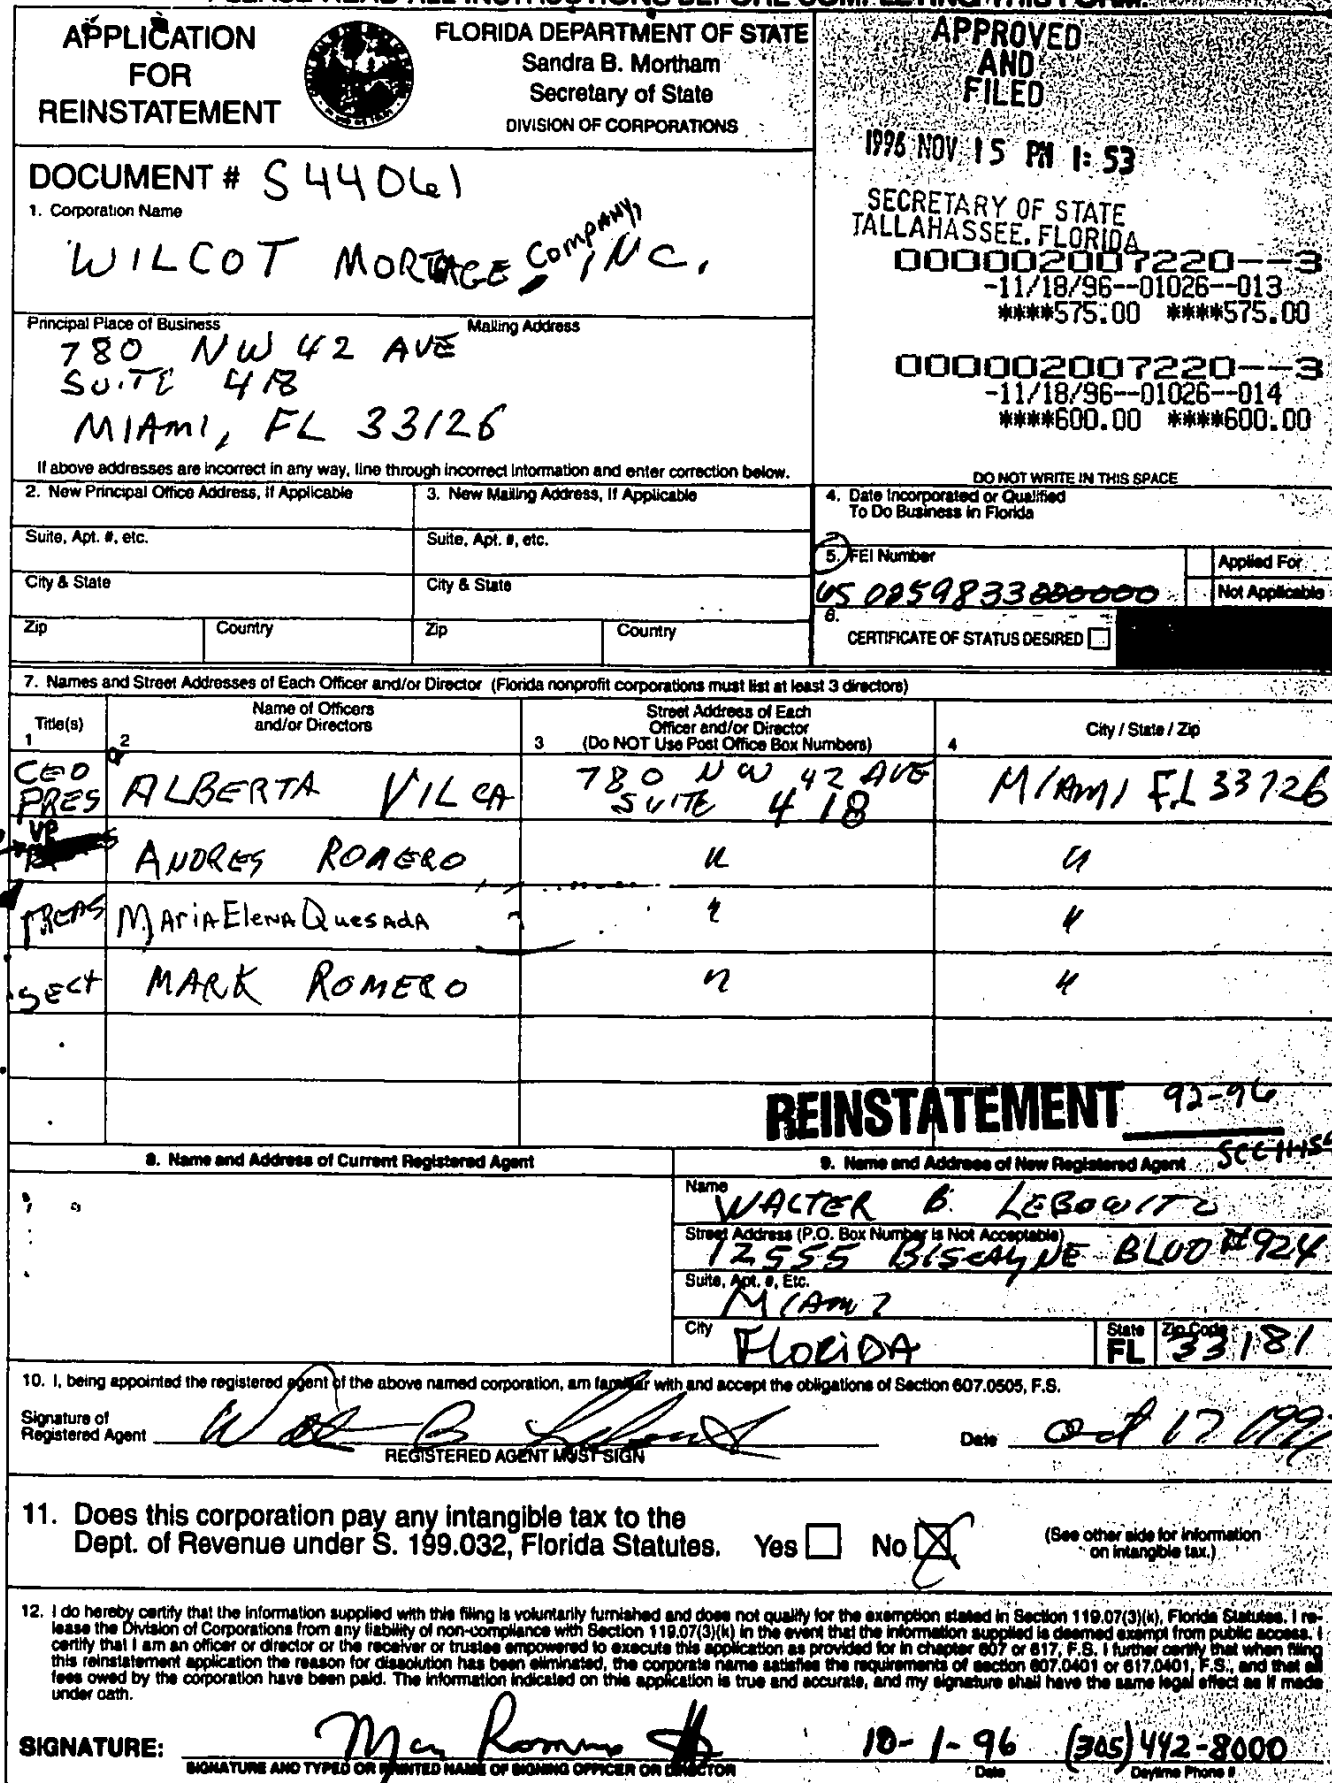 PLEASE READ ALL INSTRUCTIONS BEFORE COMPLETING THIS FORM.
APPLICATION
FOR
REINSTATEMENT
FLORIDA DEPARTMENT OF STATE
Sandra B. Mortham
Secretary of State
DIVISION OF CORPORATIONS
APPROVED
AND
FILED
1996 NOV 15 PM 1:53
SECRETARY OF STATE
TALLAHASSEE, FLORIDA
000002007220--3
-11/18/96--01026--013
****575.00 ****575.00
000002007220--3
-11/18/96--01026--014
****600.00 ****600.00
DO NOT WRITE IN THIS SPACE
DOCUMENT # S44061
1. Corporation Name
WILCOT MORTAGE COMPANY, INC.
Principal Place of Business
Mailing Address
780 NW 42 AVE
SUITE 418
MIAMI, FL 33126
If above addresses are incorrect in any way, line through incorrect information and enter correction below.
2. New Principal Office Address, If Applicable
3. New Mailing Address, If Applicable
4. Date Incorporated or Qualified
To Do Business in Florida
Suite, Apt. #, etc.
Suite, Apt. #, etc.
5. FEI Number
Applied For
Not Applicable
City & State
City & State
6.
CERTIFICATE OF STATUS DESIRED
Zip
Country
Zip
Country
7. Names and Street Addresses of Each Officer and/or Director (Florida nonprofit corporations must list at least 3 directors)
Title(s)
1
Name of Officers
and/or Directors
2
Street Address of Each
Officer and/or Director
3 (Do NOT Use Post Office Box Numbers)
4 City / State / Zip
CEO
PRES
ALBERTA VILCA
780 NW 42 AVE
SUITE 418
MIAMI FL 33126
VP
ANDRES ROMERO
"
"
TREAS
Maria Elena Quesada
"
"
SECT
MARK ROMERO
"
"
REINSTATEMENT 92-96
8. Name and Address of Current Registered Agent
9. Name and Address of New Registered Agent
Name
WALTER B. LEBOWITZ
Street Address (P.O. Box Number is Not Acceptable)
12555 BISCAYNE BLVD #924
Suite, Apt. #, Etc.
MIAMI
City
FLORIDA
State
FL
Zip Code
33181
10. I, being appointed the registered agent of the above named corporation, am familiar with and accept the obligations of Section 607.0505, F.S.
Signature of
Registered Agent
REGISTERED AGENT MUST SIGN
Date
Oct 17 199
11. Does this corporation pay any intangible tax to the
Dept. of Revenue under S. 199.032, Florida Statutes.
Yes
No
(See other side for information
on intangible tax.)
12. I do hereby certify that the information supplied with this filing is voluntarily furnished and does not qualify for the exemption stated in Section 119.07(3)(k), Florida Statutes. I re-
lease the Division of Corporations from any liability of non-compliance with Section 119.07(3)(k) in the event that the information supplied is deemed exempt from public access. I
certify that I am an officer or director or the receiver or trustee empowered to execute this application as provided for in chapter 607 or 617, F.S. I further certify that when filing
this reinstatement application the reason for dissolution has been eliminated, the corporate name satisfies the requirements of section 607.0401 or 617.0401, F.S., and that all
fees owed by the corporation have been paid. The information indicated on this application is true and accurate, and my signature shall have the same legal effect as if made
under oath.
SIGNATURE:
10-1-96 (305) 442-8000
SIGNATURE AND TYPED OR PRINTED NAME OF SIGNING OFFICER OR DIRECTOR
Date
Daytime Phone #